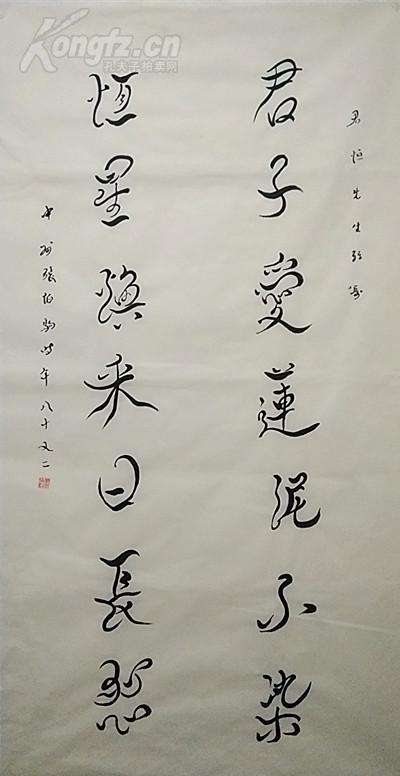 Kongfz.cn
孔夫子拍卖网
君恒先生
君子愛蓮泥不染
恆星采日長
中州張伯駒時年八十又二